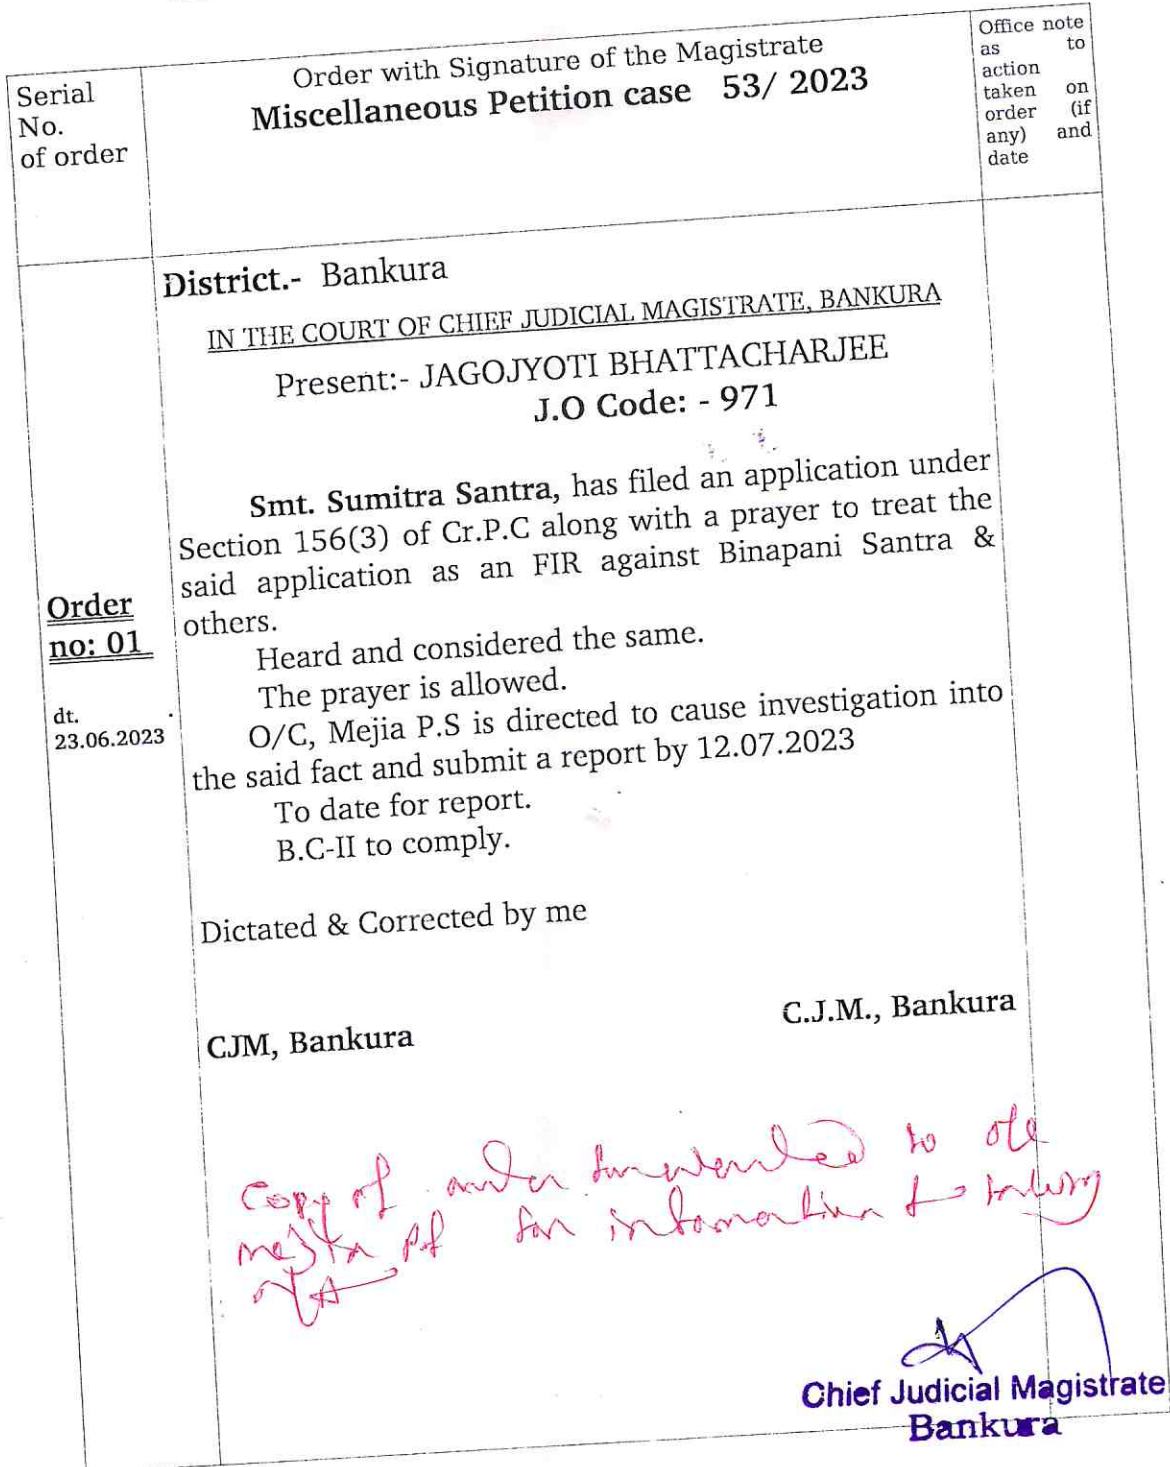 Serial
No.
of order
Order with Signature of the Magistrate
Miscellaneous Petition case 53/ 2023
Office note
as to
action
taken on
order (if
any) and
date
District.- Bankura
IN THE COURT OF CHIEF JUDICIAL MAGISTRATE, BANKURA
Present:- JAGOJYOTI BHATTACHARJEE
J.O Code: - 971
Order
no: 01
dt.
23.06.2023
Smt. Sumitra Santra, has filed an application under
Section 156(3) of Cr.P.C along with a prayer to treat the
said application as an FIR against Binapani Santra &
others.
Heard and considered the same.
The prayer is allowed.
O/C, Mejia P.S is directed to cause investigation into
the said fact and submit a report by 12.07.2023
To date for report.
B.C-II to comply.
Dictated & Corrected by me
CJM, Bankura
C.J.M., Bankura
Copy of order forwarded to
Mejia PS for information &
Chief Judicial Magistrate
Bankura